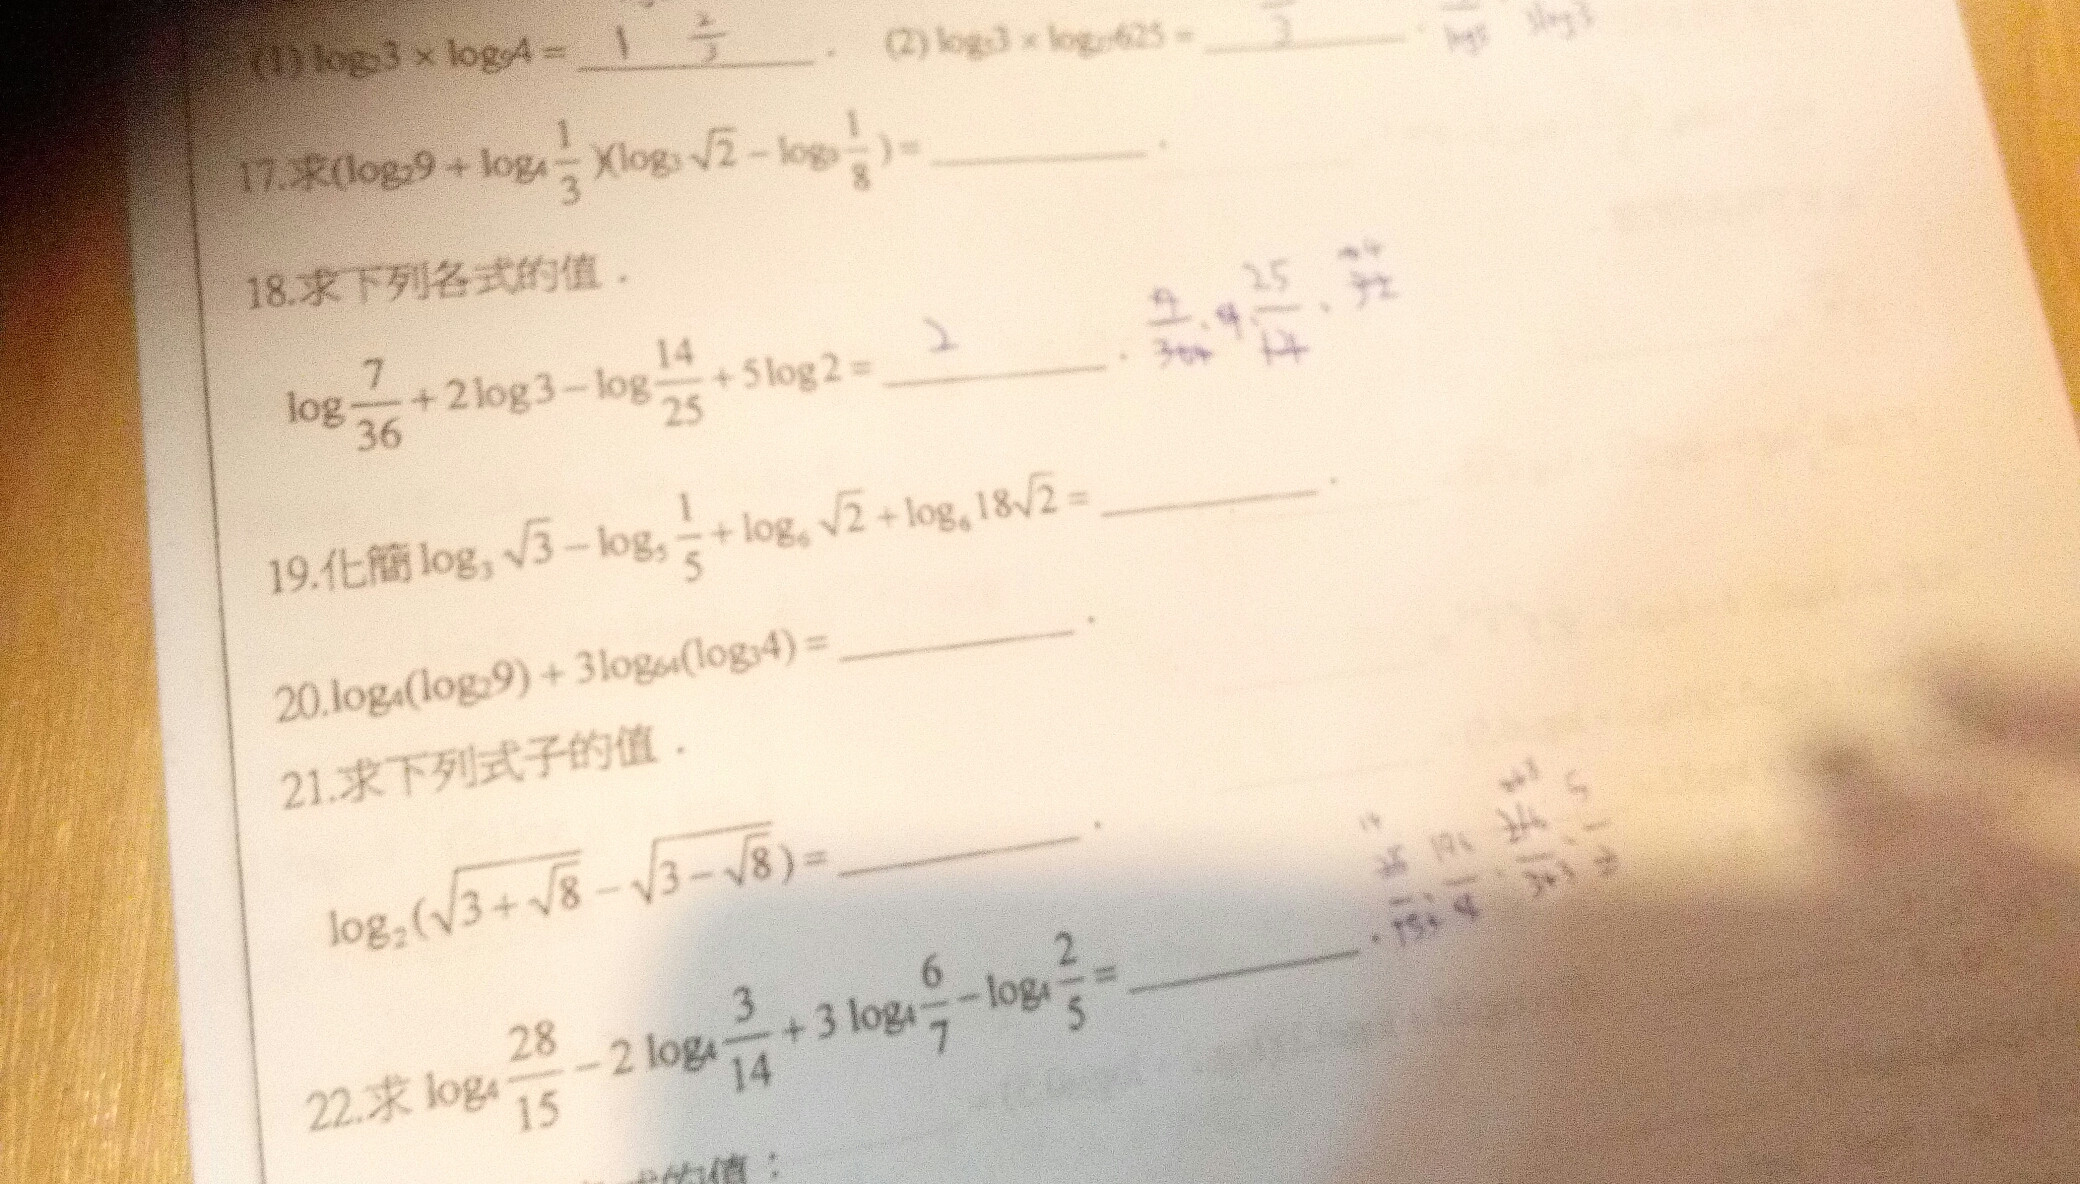 (1) log₂3 × log₉4 = 1 2/3 . (2) log₅3 × log₂₇625 = 3 .
17.求(log₂9 + log₄ 1/3 )(log₃ √2 − log₉ 1/8 ) = ________ .
18.求下列各式的值 .
log 7/36 + 2 log 3 − log 14/25 + 5 log 2 = 2 .
19.化簡 log₃ √3 − log₅ 1/5 + log₆ √2 + log₆ 18√2 = ________ .
20.log₄(log₂9) + 3log₆₄(log₃4) = ________ .
21.求下列式子的值 .
log₂(√(3+√8) − √(3−√8)) = ________ .
22.求 log₄ 28/15 − 2 log₄ 3/14 + 3 log₄ 6/7 − log₄ 2/5 = ________ .
的值：